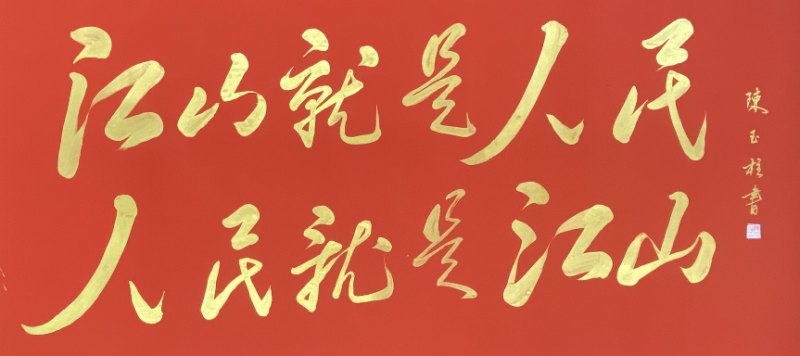 江山就是人民
人民就是江山
陳玉柱書